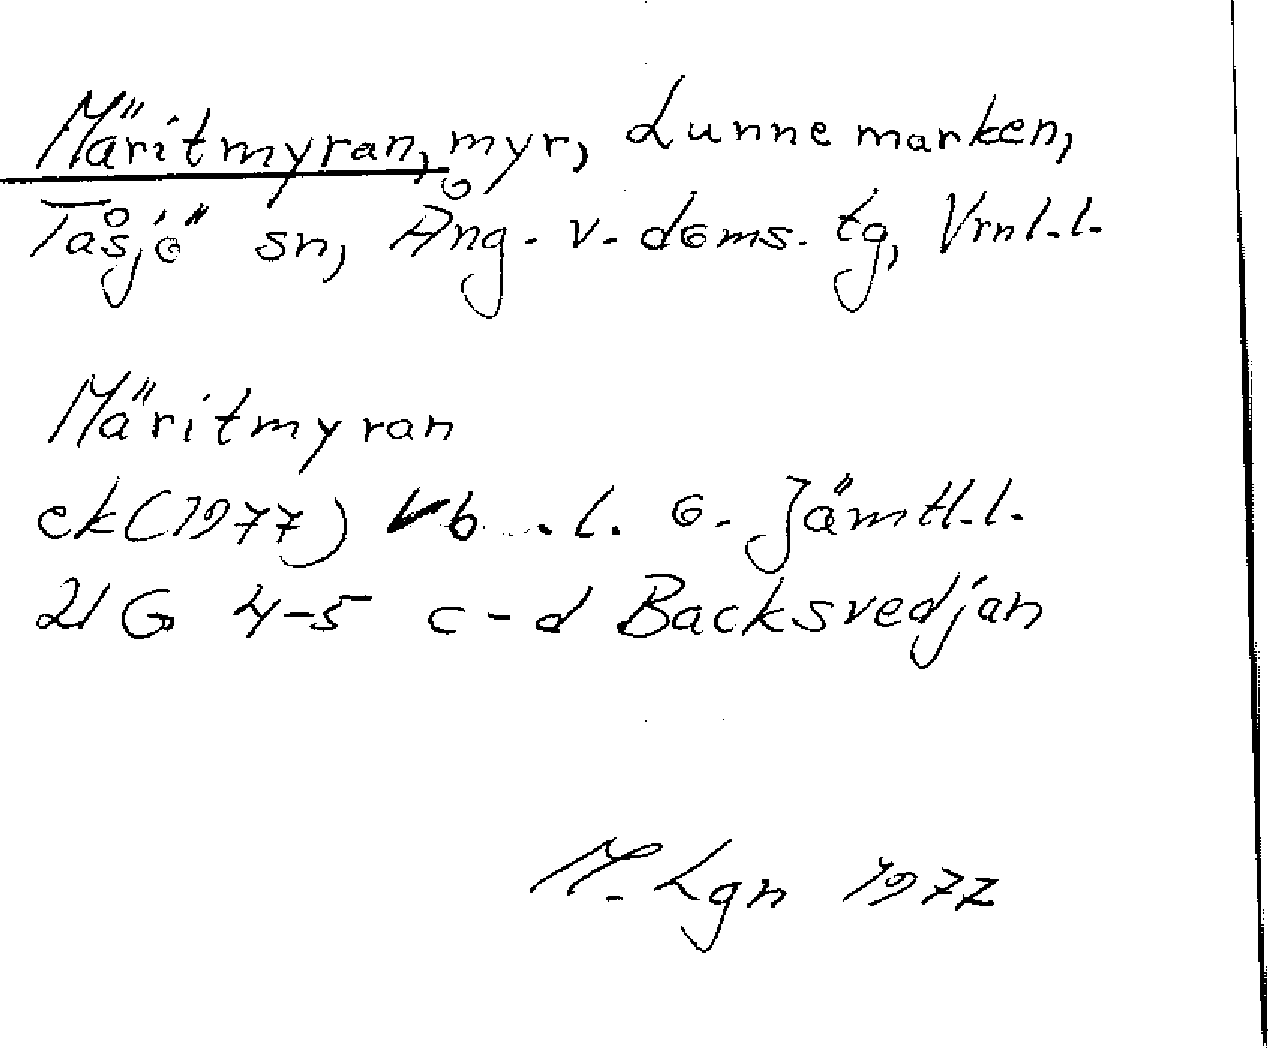 Märitmyran, myr, Lunnemarken,
Tåsjö sn, Ång. v. doms. tg, Vrnl.l.
Märitmyran
ek(1977) Vb. l. o. Jämtl.l.
21 G 4-5 c-d Backsvedjan
M. Lgn 1977